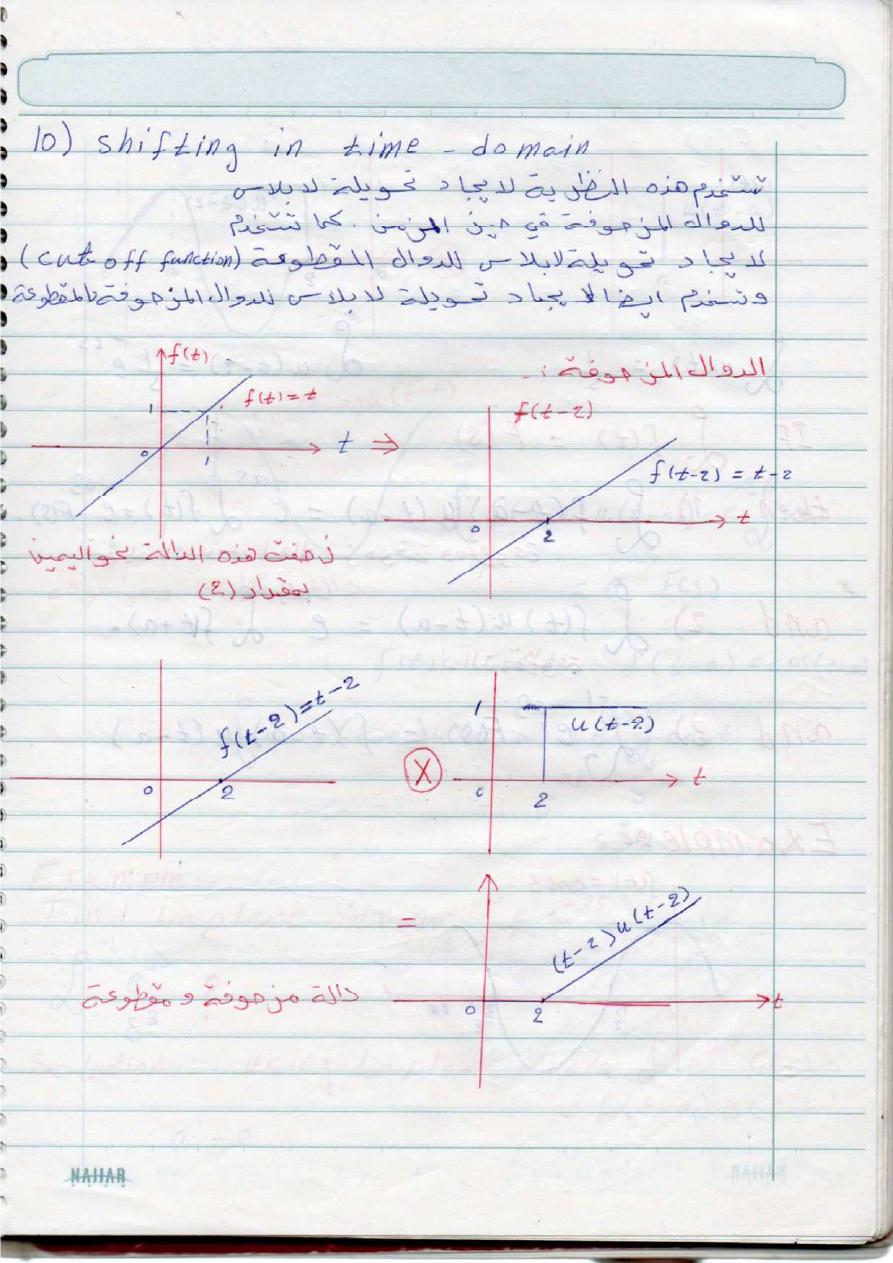 10) shifting in time-domain
تستخدم هذه النظرية لايجاد تحويلة لابلاس
للدوال المزحوفة في حيز الزمن . كما تستخدم
لايجاد تحويلة لابلاس للدوال المقطوعة (cut off function)
وتستخدم ايضا لايجاد تحويلة لابلاس للدوال المزحوفة والمقطوعة
الدوال المزحوفة :-
f(t)
f(t) = t
1
0
1
t ⇒
f(t-2)
f(t-2) = t-2
0
2
t
زحفت هذه الدالة نحو اليمين
بمقدار (2)
f(t-2)=t-2
0
2
X
1
u(t-2)
0
2
t
=
(t-2)u(t-2)
دالة مزحوفة ومقطوعة
0
2
t
NAJJAR